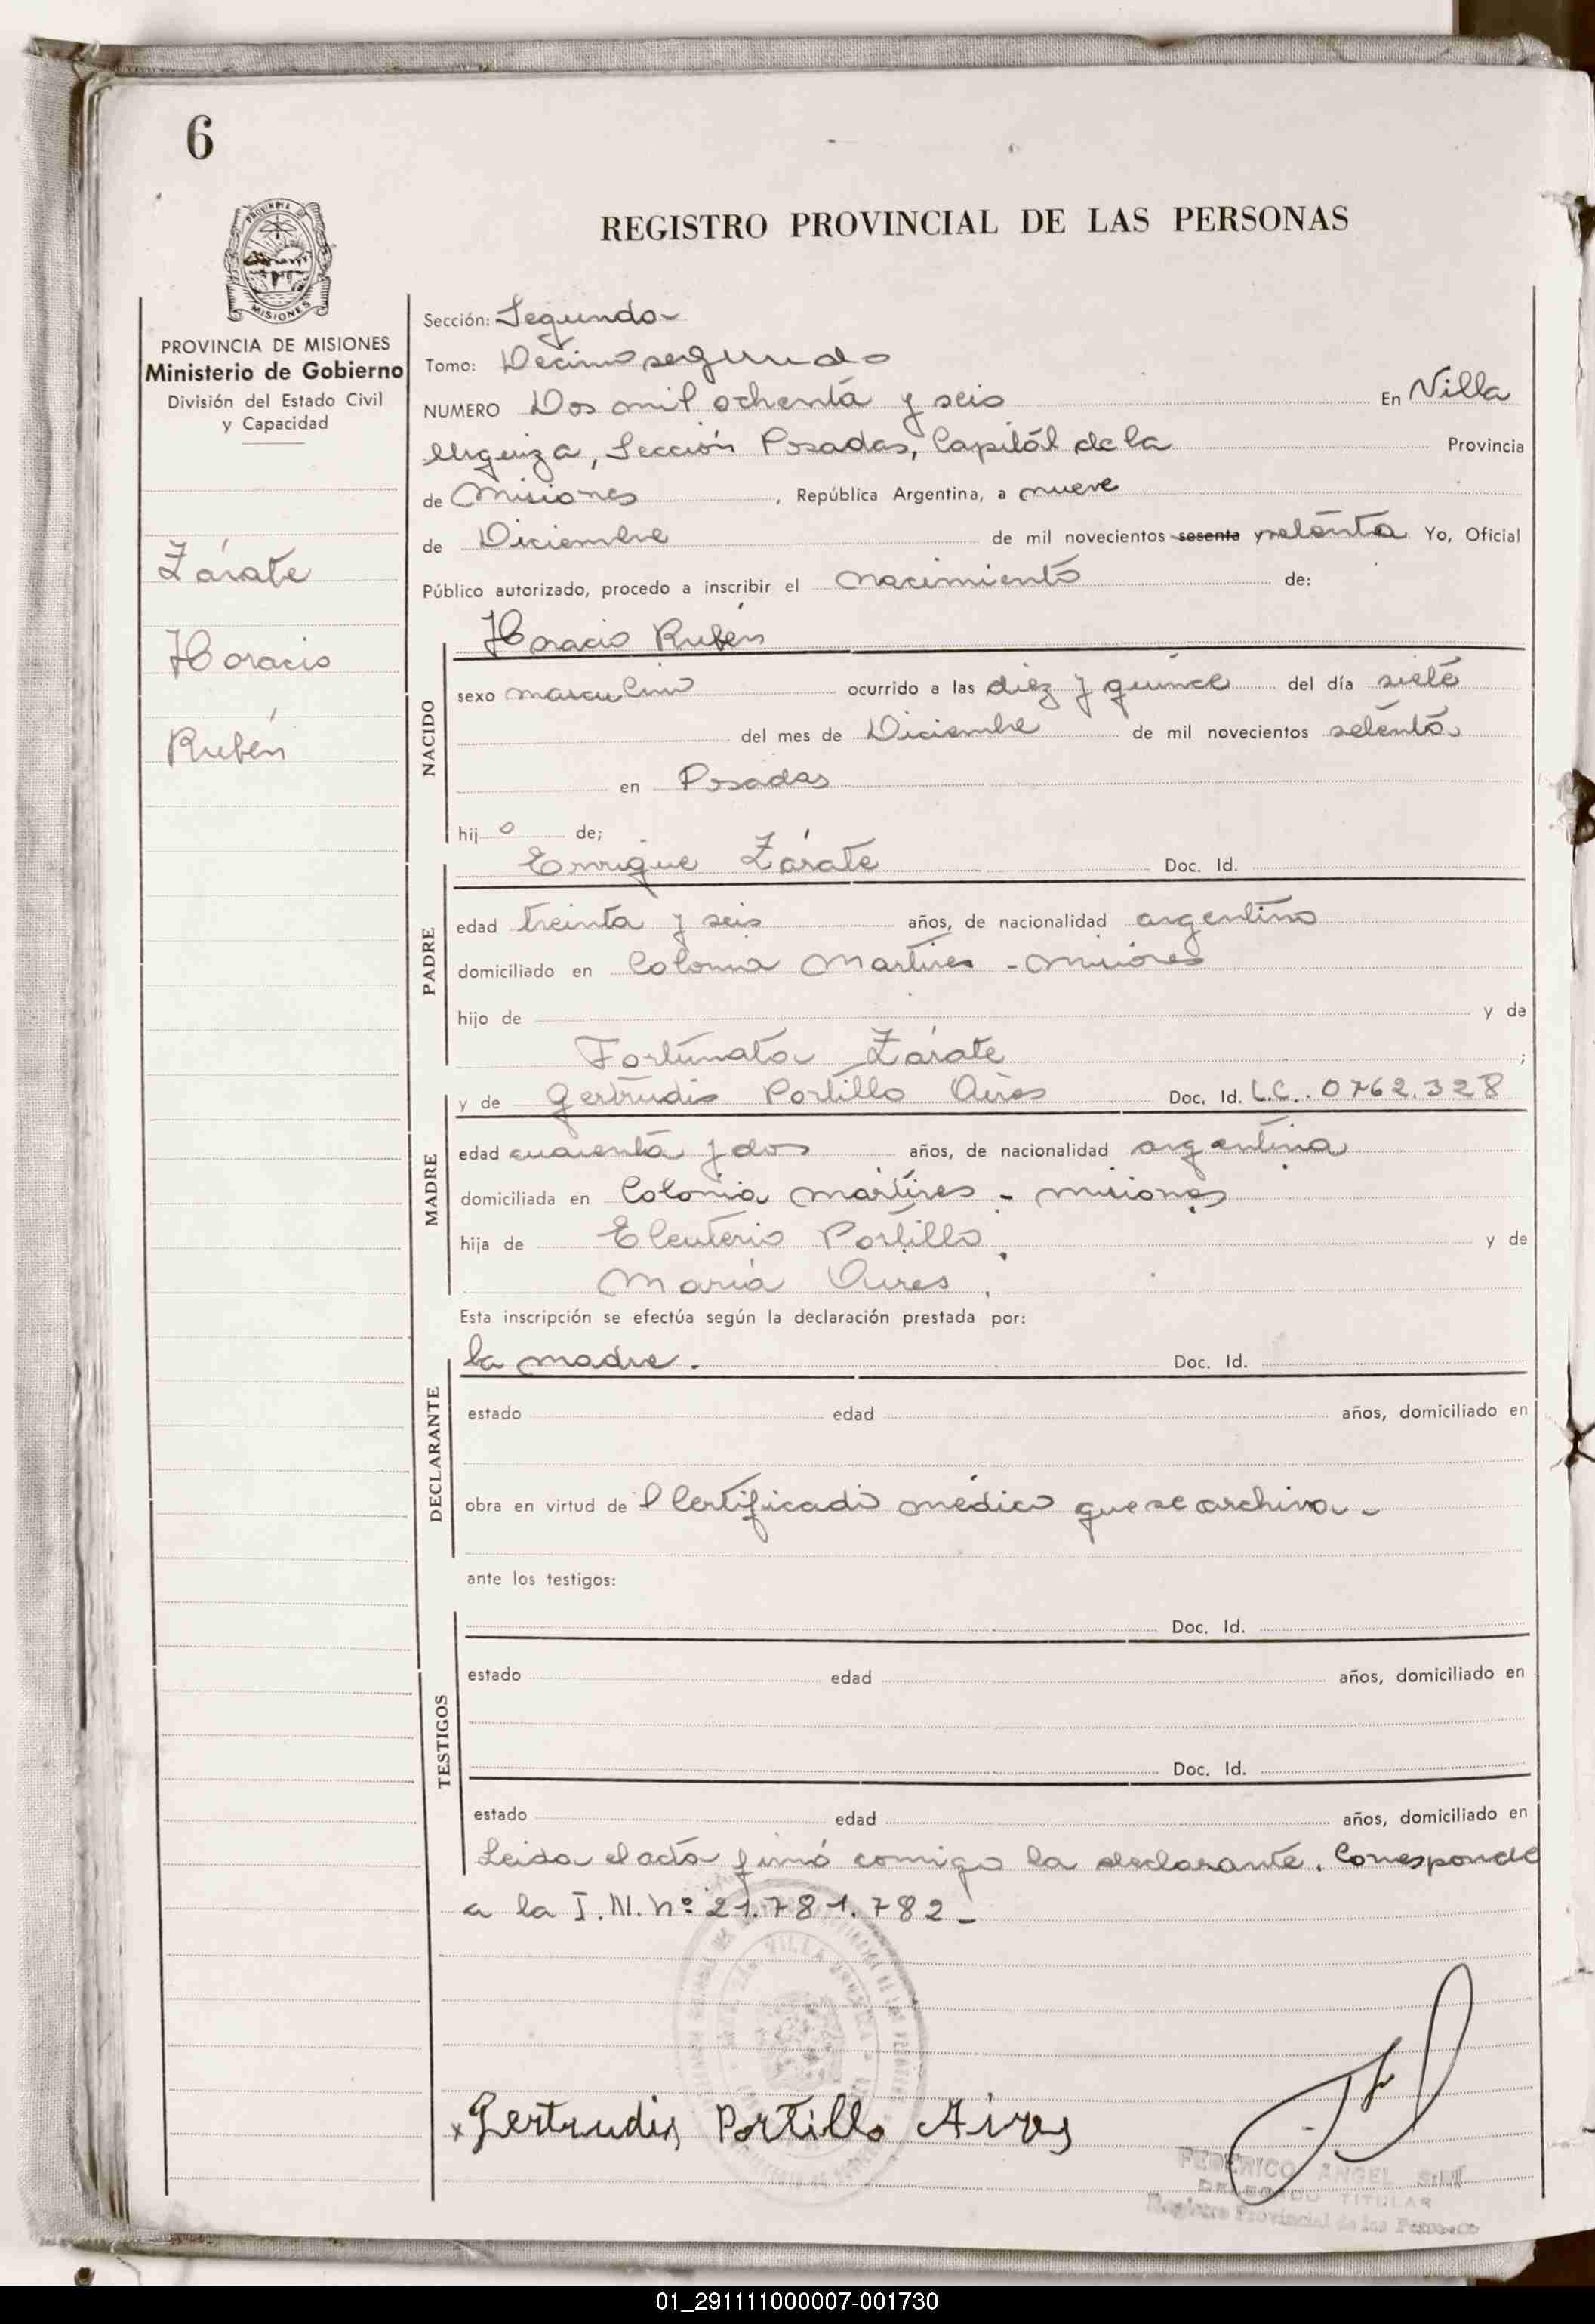 6
PROVINCIA DE
MISIONES
REGISTRO PROVINCIAL DE LAS PERSONAS
PROVINCIA DE MISIONES
Ministerio de Gobierno
División del Estado Civil
y Capacidad
Zárate
Horacio
Rubén
Sección: Segunda
Tomo: Decimo segundo
NUMERO Dos mil ochenta y seis En Villa
Urquiza, Sección Posadas, Capital de la Provincia
de Misiones, República Argentina, a nueve
de Diciembre de mil novecientos sesenta y setenta Yo, Oficial
Público autorizado, procedo a inscribir el nacimiento de:
Horacio Rubén
NACIDO
sexo masculino ocurrido a las diez y quince del día siete
del mes de Diciembre de mil novecientos setenta
en Posadas
hijo de;
Enrique Zárate Doc. Id.
PADRE
edad treinta y seis años, de nacionalidad argentino
domiciliado en Colonia Martires - Misiones
hijo de y de
Fortunata Zárate ;
y de Gertrudis Portillo Aires Doc. Id. L.C. 0762.328
MADRE
edad cuarenta y dos años, de nacionalidad argentina
domiciliada en Colonia Martires - misiones
hija de Eleuterio Portillo y de
María Aires
Esta inscripción se efectúa según la declaración prestada por:
la madre. Doc. Id.
DECLARANTE
estado edad años, domiciliado en
obra en virtud del Certificado médico que se archiva -
ante los testigos:
Doc. Id.
TESTIGOS
estado edad años, domiciliado en
Doc. Id.
estado edad años, domiciliado en
Leida el acta firmó comigo la declarante. Corresponde
a la I.M. nº 21.781.782 -
x Gertrudis Portillo Aires
FEDERICO ANGEL
DELEGADO TITULAR
Registro Provincial de las Personas
01_291111000007-001730